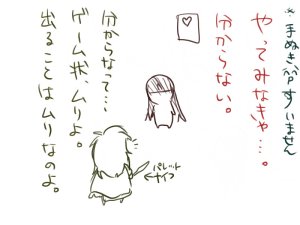 ※手ぬき絵ですいません
やってみなきゃ…。
分からない。
分からなって…
ゲーム状、ムリよ。
出ることはムリなのよ。
パレット
ナイフ